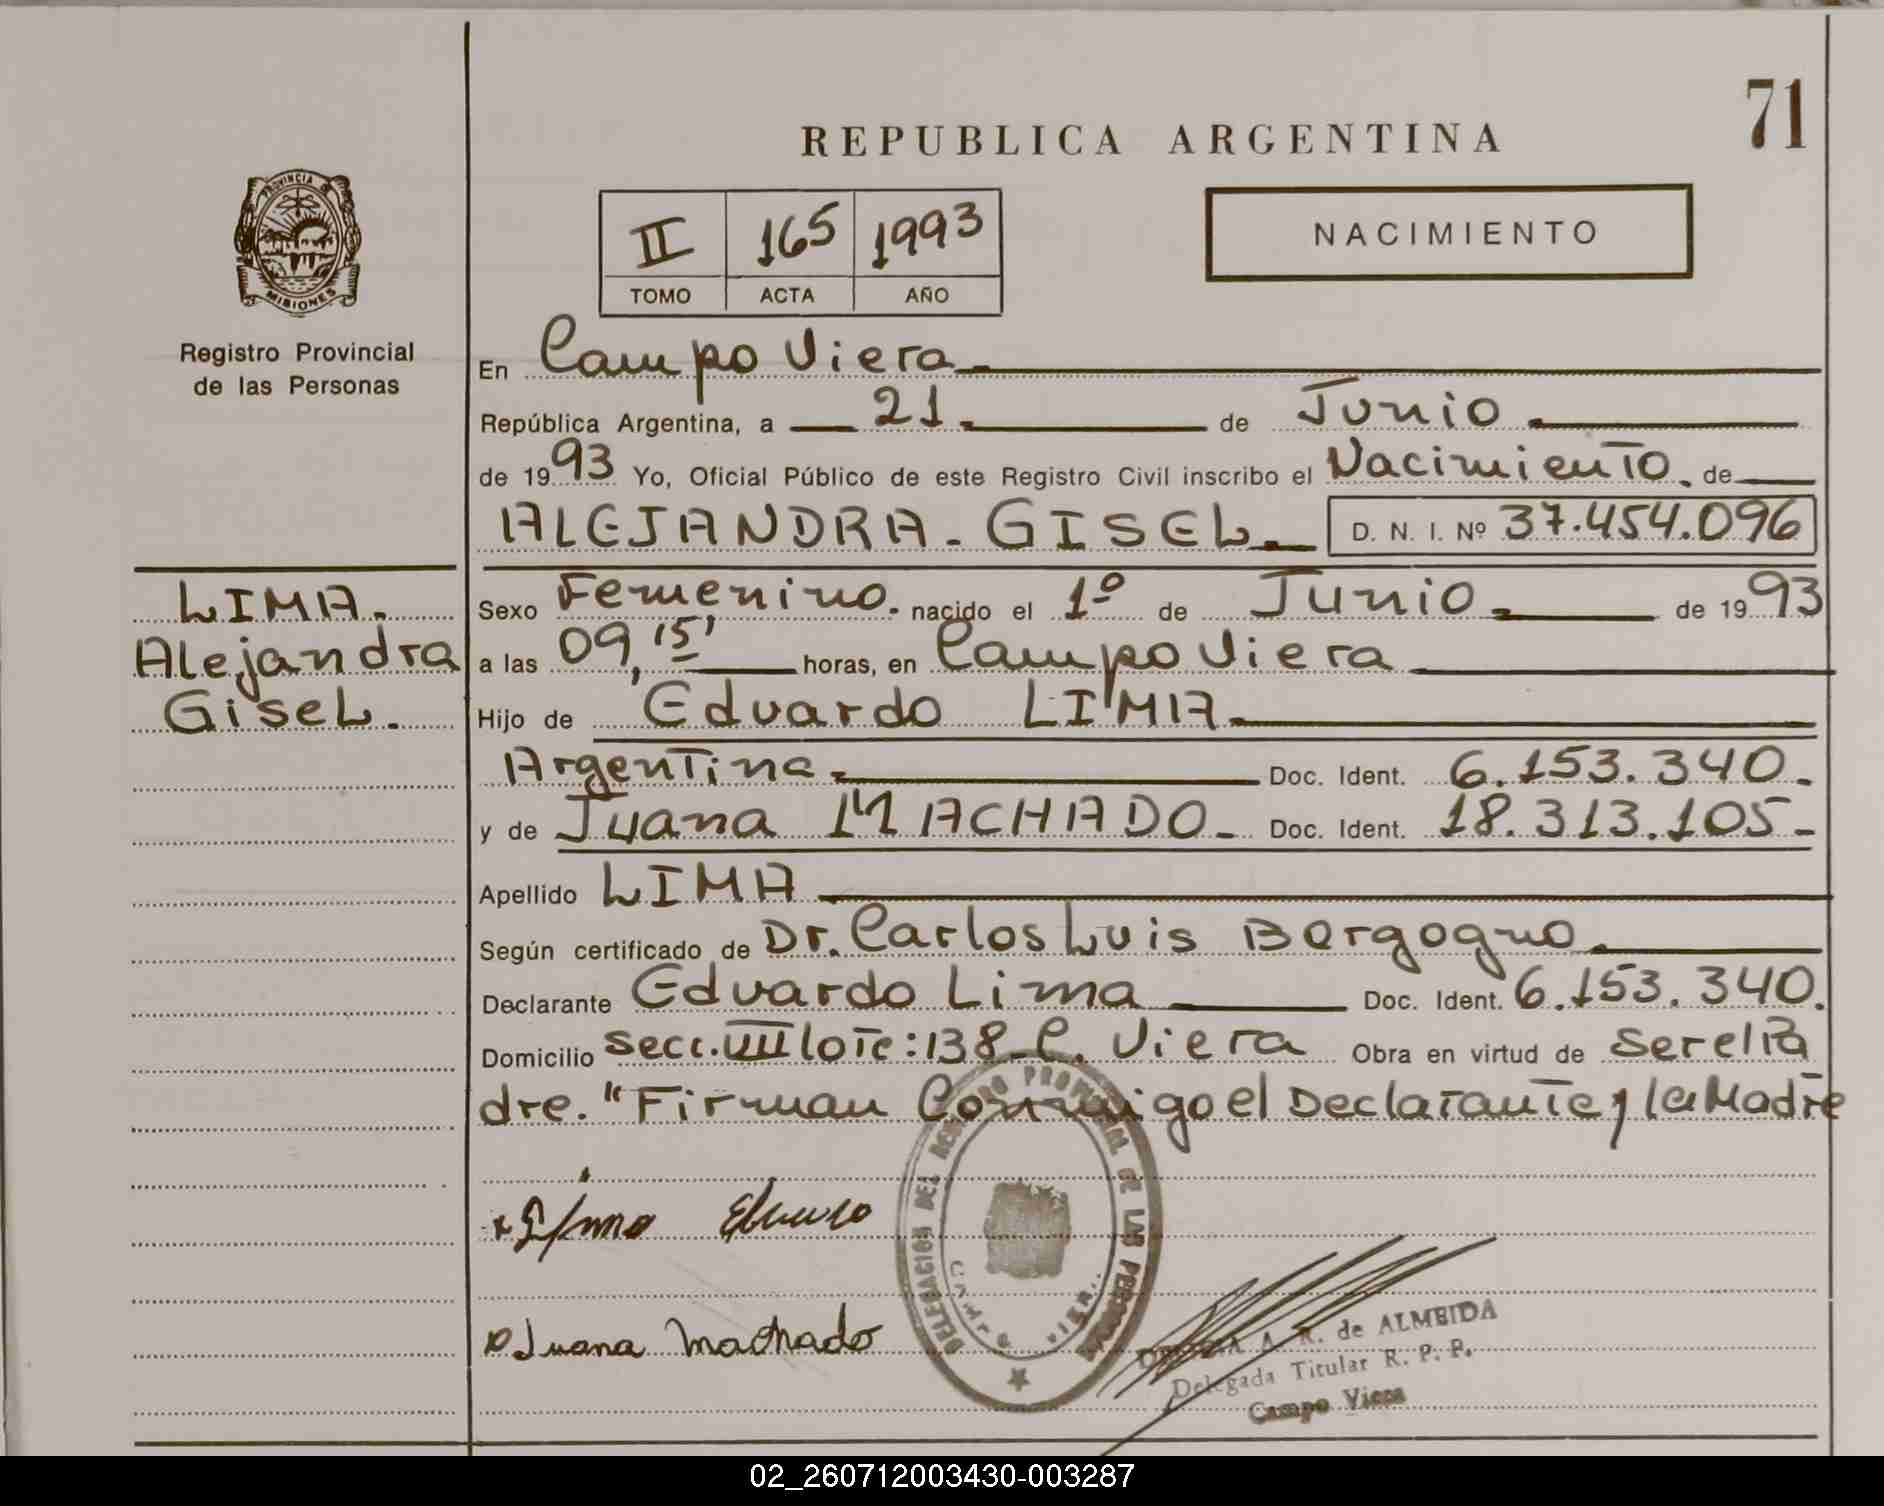 71
REPUBLICA ARGENTINA
PROVINCIA DE
MISIONES
Registro Provincial
de las Personas
II 165 1993
TOMO ACTA AÑO
NACIMIENTO
En Campo Viera
República Argentina, a 21 de Junio
de 1993 Yo, Oficial Público de este Registro Civil inscribo el Nacimiento de
ALEJANDRA - GISEL D. N. I. Nº 37.454.096
LIMA.
Alejandra
Gisel.
Sexo Femenino. nacido el 1º de Junio de 1993
a las 09,15' horas, en Campo Viera
Hijo de Eduardo LIMA
Argentina Doc. Ident. 6.153.340.
y de Juana MACHADO Doc. Ident. 18.313.105
Apellido LIMA
Según certificado de Dr. Carlos Luis Borgogno
Declarante Eduardo Lima Doc. Ident. 6.153.340.
Domicilio secc. VIII lote: 138 C. Viera Obra en virtud de ser el Pa
dre. "Firman Conmigo el Declarante y la Madre
Lima Eduardo
DELEGACION DEL REGISTRO PROVINCIAL DE LAS PERSONAS
CAMPO VIERA
Juana Machado
A. R. de ALMEIDA
Delegada Titular R. P. P.
Campo Viera
02_260712003430-003287